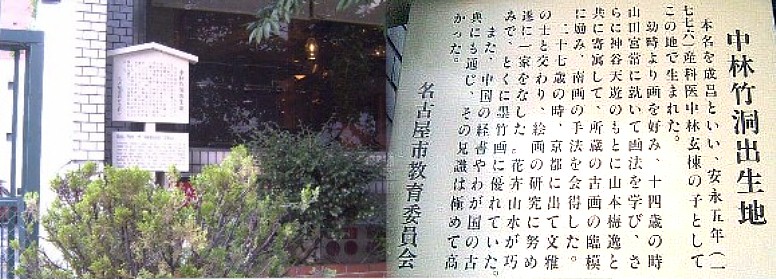 中林竹洞出生地
本名を成昌といい、安永五年（一
七七六）産科医中林玄棟の子として
この地で生まれた。
幼時より画を好み、十四歳の時
山田宮常に就いて画法を学び、さ
らに神谷天遊のもとに山本梅逸と
共に寄寓して、所蔵の古画の臨模
に励み、南画の手法を会得した。
二十七歳の時、京都に出て文雅
の士と交わり、絵画の研究に努め
遂に一家をなした。花卉山水が巧
みで、とくに墨竹画に優れていた。
また、中国の経書やわが国の古
典にも通じ、その見識は極めて高
かった。
名古屋市教育委員会